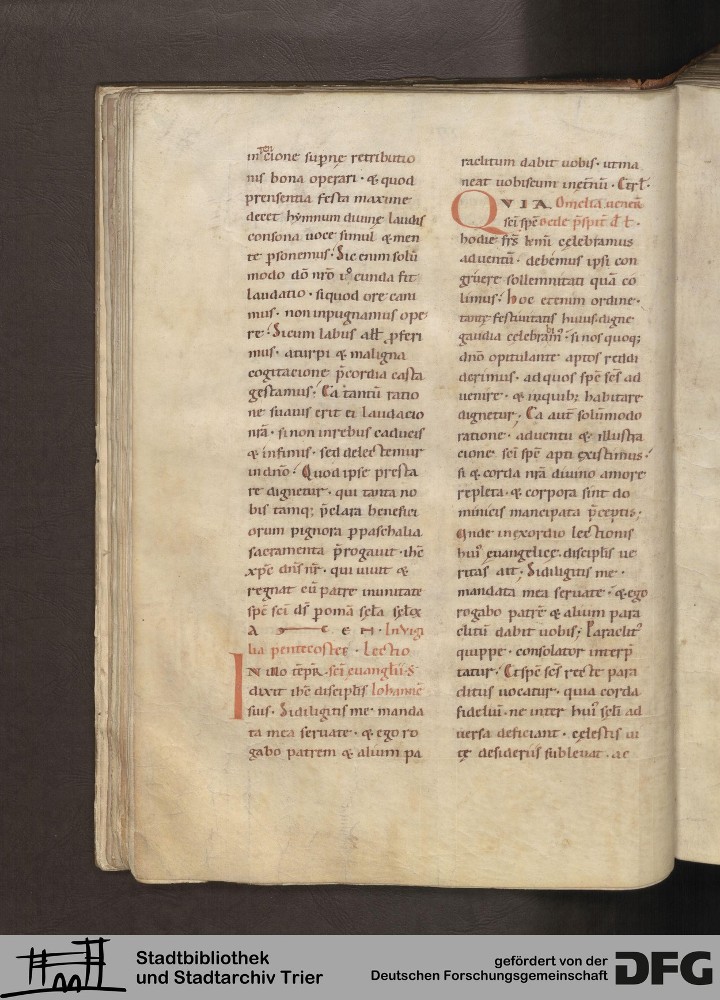 intencione supernę retributio
nis bona operari · & quod
presentia festa maxime
decet hymnum diuinę laudis
consona uoce simul & men
te p̱sonemus · Sic enim solū
modo dō nr̄o iocunda fit
laudatio · si quod ore cani
mus · non inpugnamus ope
re · Si cum labiis all̄ p̱feri
mus · a turpi & maligna
cogitacione p̄cordia casta
gestamus · Ea tantū ratio
ne suauis erit ei laudacio
nr̄a · si non in rebus caducis
& infimis · sed delectemur
in dn̄o · Quod ipse presta
re dignetur · qui tanta no
bis tamq; p̄clara benefici
orum pignora p̱ paschalia
sacramenta p̄rogauit · ih̄c
xp̄c dn̄s nr̄ · qui uiuit &
regnat cū patre in unitate
sp̄c sc̄i ds̄ p̱ omnia sc̄la sc̄lox
A M E N · In uigi
lia pentecostes · Lectio
IN illo tēpr̄ · sc̄i euangl̄ii · S
dixit ih̄c disciplis Iohannē
suis · Si diligitis me · manda
ta mea seruate · & ego ro
gabo patrem & alium pa
raclitum dabit uobis · ut ma
neat uobiscum in et̄nū · & rl̄ ·
QVIA Omelia uenerā
sc̄i sp̄c bede p̄sp̄it d̄ l̄ ·
hodie fr̄s km̄i celebramus
aduentū · debemus ipsi con
gruere sollemnitati quā co
limus · hoc etenim ordine ·
tantę festiuitatis huius digne
gaudia celebram̄ · si nos quoq;
dn̄o opitulante aptos reddi
derimus · ad quos sp̄c sc̄s ad
uenire · & in quib; habitare
dignetur · Ea aut̄ solūmodo
ratione · aduentu & illustra
cione sc̄i sp̄c apti existimus ·
si & corda nr̄a diuino amore
repleta · & corpora sint do
minicis mancipata p̄ceptis;
Unde in exordio lectionis
hui᾿ euangelicę · disciplis ue
ritas ait · Si diligitis me ·
mandata mea seruate · & ego
rogabo patrē & alium para
clitū dabit uobis; Paraclit᾿
quippe · consolator interp̄
tatur · Et sp̄c sc̄s recte para
clitus uocatur · quia corda
fideliū · ne inter hui᾿ scl̄i ad
uersa deficiant · cęlestis ui
tę desideriis subleuat · ac
Stadtbibliothek
und Stadtarchiv Trier
gefördert von der
Deutschen Forschungsgemeinschaft
DFG